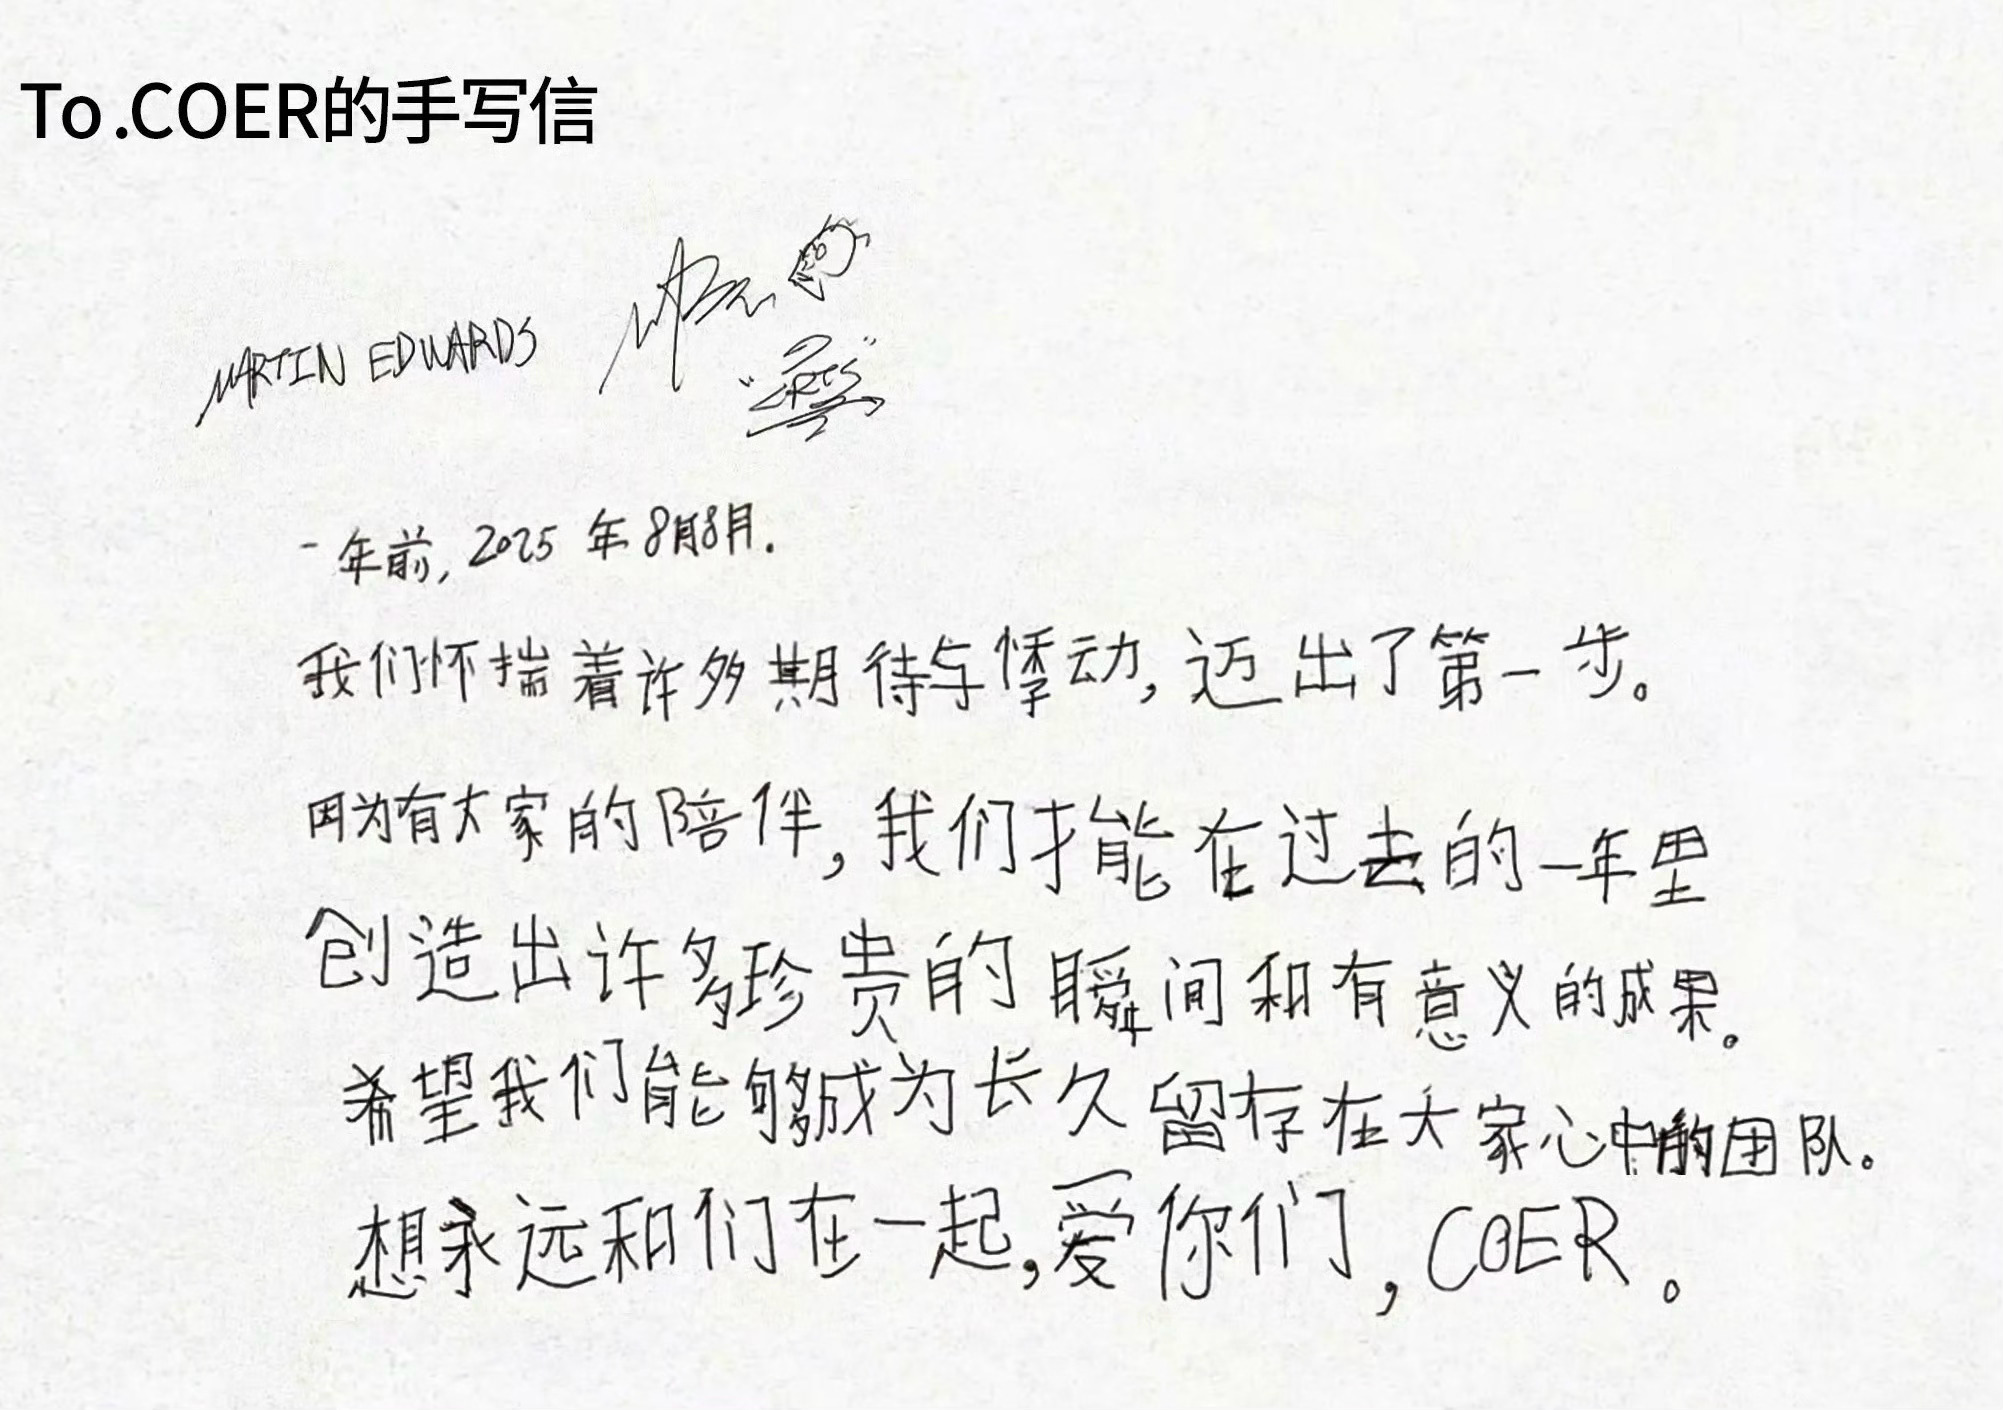 To .COER的手写信
MARTIN EDWARDS
一年前, 2025 年 8月8月.
我们怀揣着许多期待与悸动, 迈出了第一步。
因为有大家的陪伴, 我们才能在过去的一年里
创造出许多珍贵的瞬间和有意义的成果。
希望我们能够成为长久留存在大家心中的团队。
想永远和们在一起, 爱你们, COER。